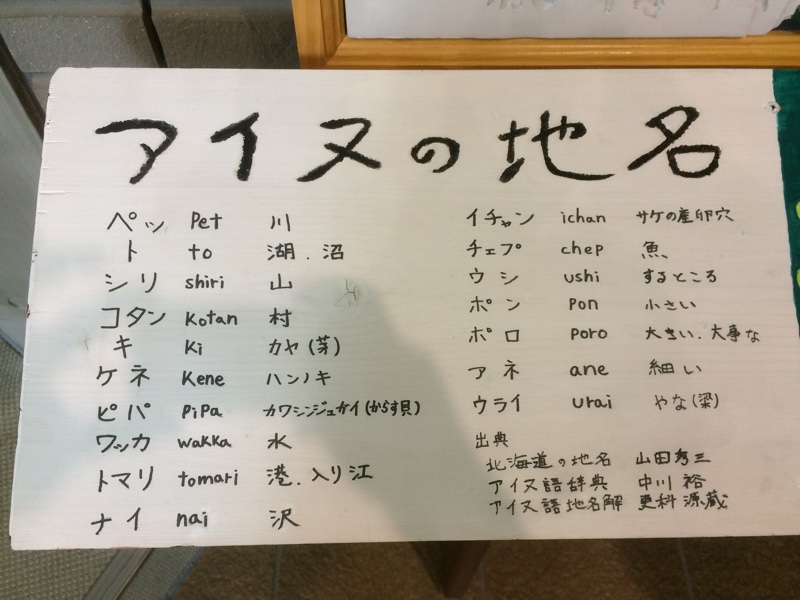 アイヌの地名
ペッ pet 川
ト to 湖.沼
シリ shiri 山
コタン kotan 村
キ ki カヤ(芽)
ケネ kene ハンノキ
ピパ pipa カワシンジュガイ(からす貝)
ワッカ wakka 水
トマリ tomari 港.入り江
ナイ nai 沢
イチャン ichan サケの産卵穴
チェプ chep 魚
ウシ ushi するところ
ポン pon 小さい
ポロ poro 大きい.大事な
アネ ane 細い
ウライ urai やな(梁)
出典
北海道の地名 山田秀三
アイヌ語辞典 中川裕
アイヌ語地名解 更科源蔵